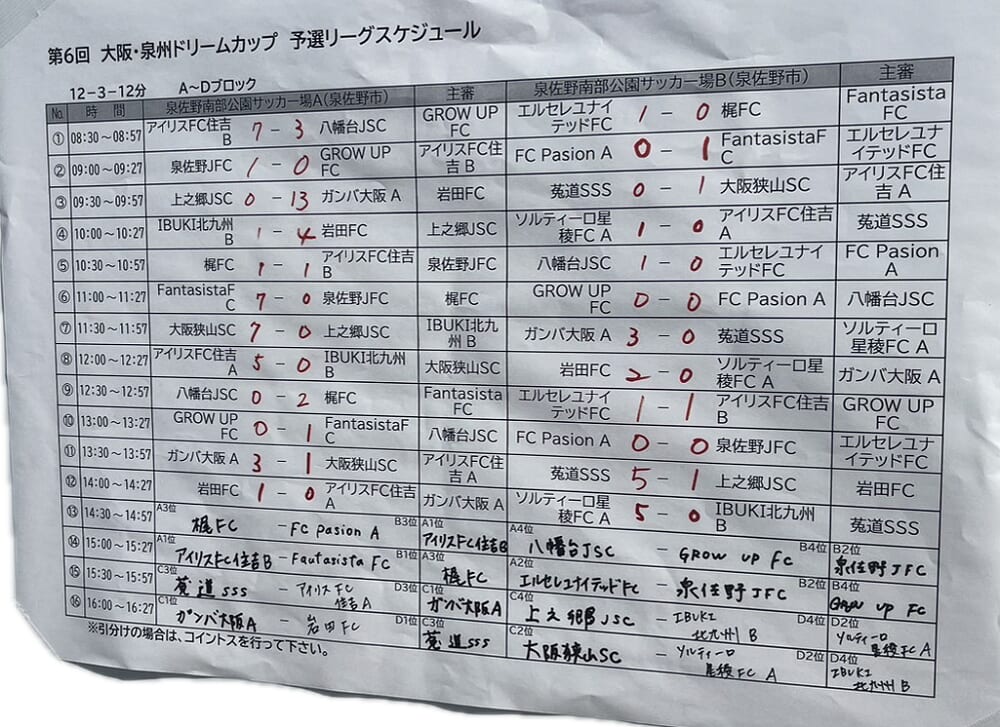 第6回 大阪・泉州ドリームカップ 予選リーグスケジュール
12-3-12分 A～Dブロック
No. 時 間 泉佐野南部公園サッカー場A(泉佐野市) 主審 泉佐野南部公園サッカー場B(泉佐野市) 主審
① 08:30～08:57 アイリスFC住吉B 7 - 3 八幡台JSC GROW UP FC エルセレユナイテッドFC 1 - 0 梶FC Fantasista FC
② 09:00～09:27 泉佐野JFC 1 - 0 GROW UP FC アイリスFC住吉 B FC Pasion A 0 - 1 FantasistaFC エルセレユナイテッドFC
③ 09:30～09:57 上之郷JSC 0 - 13 ガンバ大阪 A 岩田FC 菟道SSS 0 - 1 大阪狭山SC アイリスFC住吉 A
④ 10:00～10:27 IBUKI北九州B 1 - 4 岩田FC 上之郷JSC ソルティーロ星稜FC A 1 - 0 アイリスFC住吉A 菟道SSS
⑤ 10:30～10:57 梶FC 1 - 1 アイリスFC住吉B 泉佐野JFC 八幡台JSC 1 - 0 エルセレユナイテッドFC FC Pasion A
⑥ 11:00～11:27 FantasistaFC 7 - 0 泉佐野JFC 梶FC GROW UP FC 0 - 0 FC Pasion A 八幡台JSC
⑦ 11:30～11:57 大阪狭山SC 7 - 0 上之郷JSC IBUKI北九州 B ガンバ大阪 A 3 - 0 菟道SSS ソルティーロ星稜FC A
⑧ 12:00～12:27 アイリスFC住吉A 5 - 0 IBUKI北九州B 大阪狭山SC 岩田FC 2 - 0 ソルティーロ星稜FC A ガンバ大阪 A
⑨ 12:30～12:57 八幡台JSC 0 - 2 梶FC Fantasista FC エルセレユナイテッドFC 1 - 1 アイリスFC住吉B GROW UP FC
⑩ 13:00～13:27 GROW UP FC 0 - 1 FantasistaFC 八幡台JSC FC Pasion A 0 - 0 泉佐野JFC エルセレユナイテッドFC
⑪ 13:30～13:57 ガンバ大阪 A 3 - 1 大阪狭山SC アイリスFC住吉 A 菟道SSS 5 - 1 上之郷JSC 岩田FC
⑫ 14:00～14:27 岩田FC 1 - 0 アイリスFC住吉A ガンバ大阪 A ソルティーロ星稜FC A 5 - 0 IBUKI北九州B 菟道SSS
⑬ 14:30～14:57 A3位 梶FC - FC Pasion A B3位 A1位 アイリスFC住吉B A4位 八幡台JSC - GROW UP FC B4位 B2位 泉佐野JFC
⑭ 15:00～15:27 A1位 アイリスFC住吉B - Fautasista FC B1位 A3位 梶FC A2位 エルセレユナイテッドFC - 泉佐野JFC B2位 B4位 GROW UP FC
⑮ 15:30～15:57 C3位 菟道SSS - アイリスFC住吉A D3位 C1位 ガンバ大阪A C4位 上之郷JSC - IBUKI北九州B D4位 D2位 ソルティーロ星稜FC A
⑯ 16:00～16:27 C1位 ガンバ大阪A - 岩田FC D1位 C3位 菟道SSS C2位 大阪狭山SC - ソルティーロ星稜FC A D2位 D4位 IBUKI北九州B
※引分けの場合は、コイントスを行って下さい。